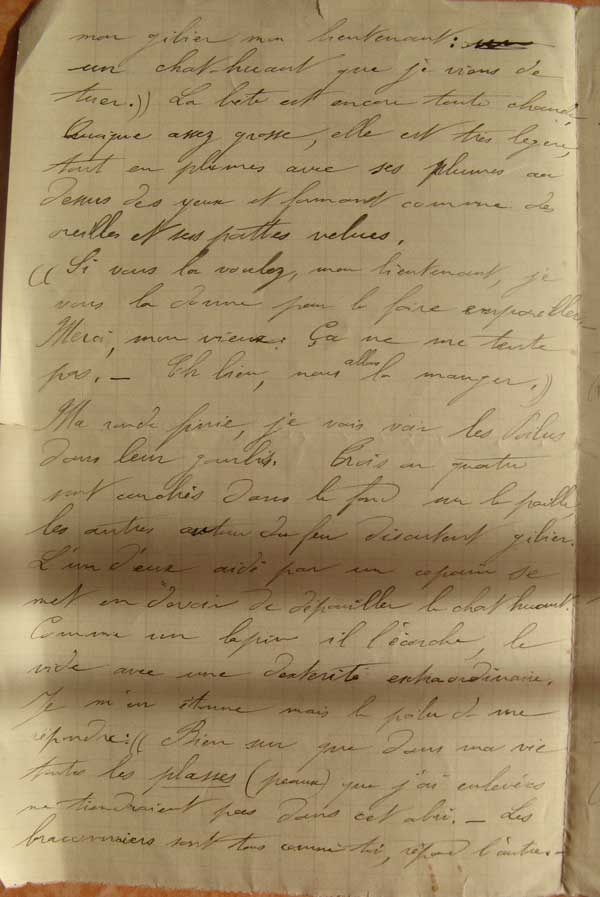 mon gibier mon lieutenant :
un chat-huant que je viens de
tuer. )) La bete est encore toute chaude
Quoique assez grosse, elle est très légère,
tout en plumes avec ses plumes au
dessus des yeux et formant comme des
oreilles et ses pattes velues.
(( Si vous la voulez, mon lieutenant, je
vous la donne pour la faire empailler. –
Merci, mon vieux. Ça ne me tente
pas. – Eh bien, nous allons la manger. ))
Ma ronde finie, je vais voir les Poilus
dans leur gourbis. Trois ou quatre
sont couchés dans le fond sur la paille,
les autres autour du feu discutent gibier.
L'un d'eux aidé par un copain se
met en devoir de dépouiller le chat huant.
Comme un lapin il l'écorche, le
vide avec une dexterité extraordinaire.
Je m'en étonne mais le poilu de me
répondre : (( Bien sur que dans ma vie
toutes les plasses (peaux) que j'ai enlevées
ne tiendraient pas dans cet abri. – Les
braconniers sont tous comme toi, répond l'autre. –